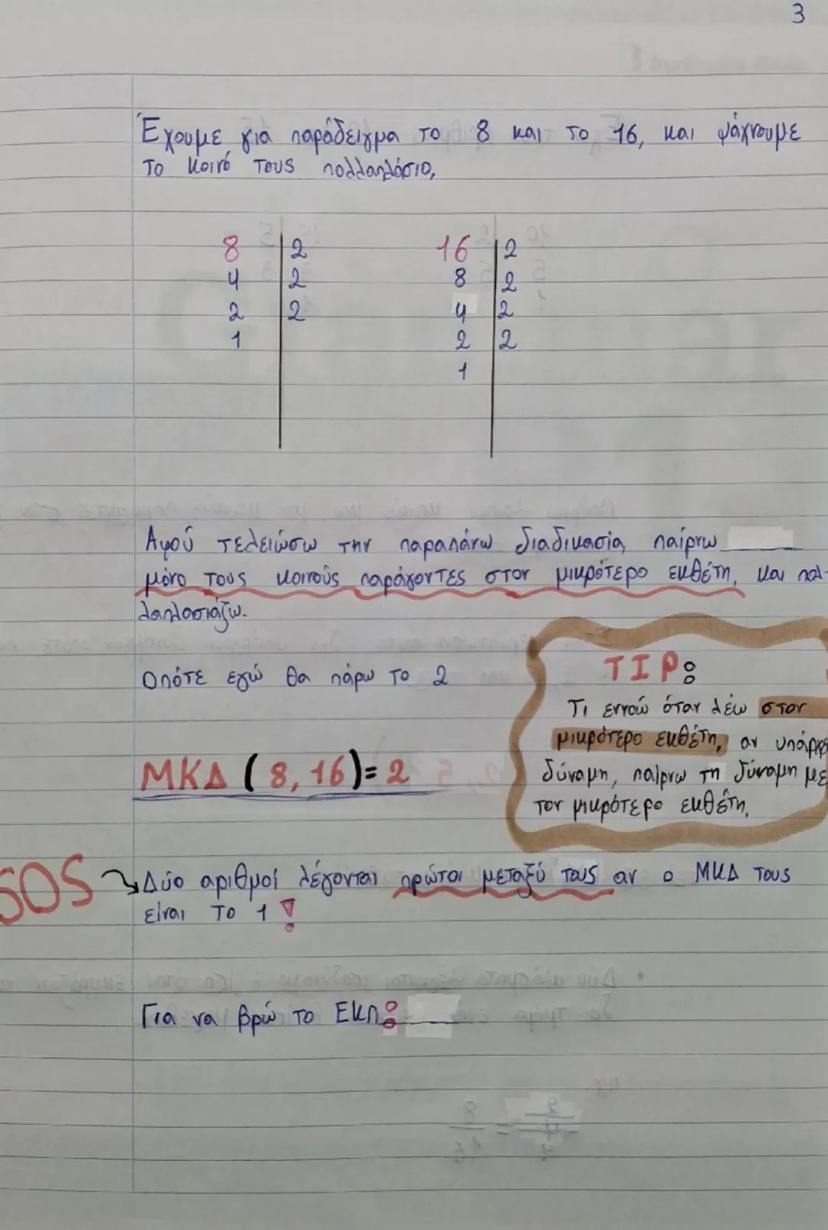 3
Έχουμε για παράδειγμα το 8 και το 16, και ψάχνουμε
το κοινό τους πολλαπλάσιο,
8 | 2 16 | 2
4 | 2 8 | 2
2 | 2 4 | 2
1 2 | 2
1
Αφού τελειώσω την παραπάνω διαδικασία, παίρνω
μόνο τους κοινούς παράγοντες στον μικρότερο εκθέτη, και πολ-
λαπλασιάζω.
Οπότε εγώ θα πάρω το 2
ΜΚΔ (8, 16) = 2
TIP:
Τι εννοώ όταν λέω στον
μικρότερο εκθέτη, αν υπάρχει
δύναμη, παίρνω τη δύναμη με
τον μικρότερο εκθέτη.
SOS
Δύο αριθμοί λέγονται πρώτοι μεταξύ τους αν ο ΜΚΔ τους
είναι το 1!
Για να βρώ το ΕΚΠ: